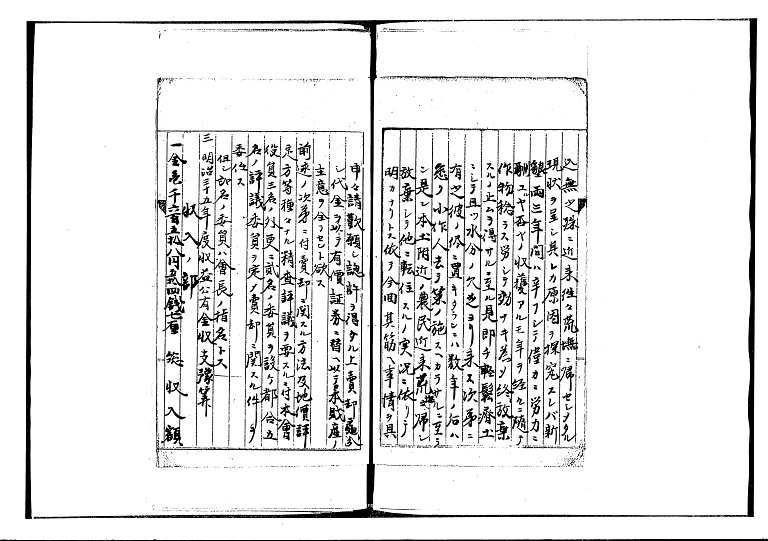 之無之殊ニ近来往々荒撫ニ帰セントスル
現状ヲ呈シ具レカ原因ヲ探究スレバ新
墾両三年間ハ辛フシテ僅カニ労力ニ
酬ユヤ否ヤノ収獲アルモ年ヲ経ルニ随ヒ
作物稔ラス労シテ功ナキ為メ終放棄
スルノ止ムヲ得サルニ至ル是即チ軽鬆瘠土
ニシテ且ツ水分ノ欠乏ヨリ来ス次第ニ
有之彼ノ儘ニ置キタランニハ数年ノ后ハ
悉ク小作人去テ策ノ施スヘカラサルニ至ラ
ン是レ本土附近ノ農民近来荒撫ニ帰シ
放棄シテ他ニ転住スルノ実况ニ依リテ
明カナリトス依テ今回其筋ヘ事情ヲ具
申々請歎願シ認許ヲ得タル上賣却処分
シ代金ヲ以テ有價証券ニ替ヘ以テ本財産ノ
主意ヲ全フセント欲ス
前述ノ次第ニ付賣却ニ関スル方法及地價評
定方等種々ナル精査評議ヲ要スルニ付本會
役員三名ノ外更ニ貳名ノ委員ヲ設ケ都合五
名ノ評議委員ヲ定メ賣却ニ関スル件ヲ
委任ス
但シ貳名ノ委員ハ會長ノ指名トス
三 明治三十五年度収益公有金収支豫算
収入ノ部
一金壱千六百五拾八円四銭七厘 総収入額